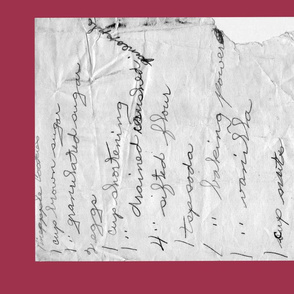 Pineapple Cookies
1 cup brown sugar
1 " granulated sugar
2 eggs
1 cup shortening
1 " drained crushed pineapple
4 " sifted flour
1 tsp soda
1 " baking powder
1 " vanilla
1 cup nuts